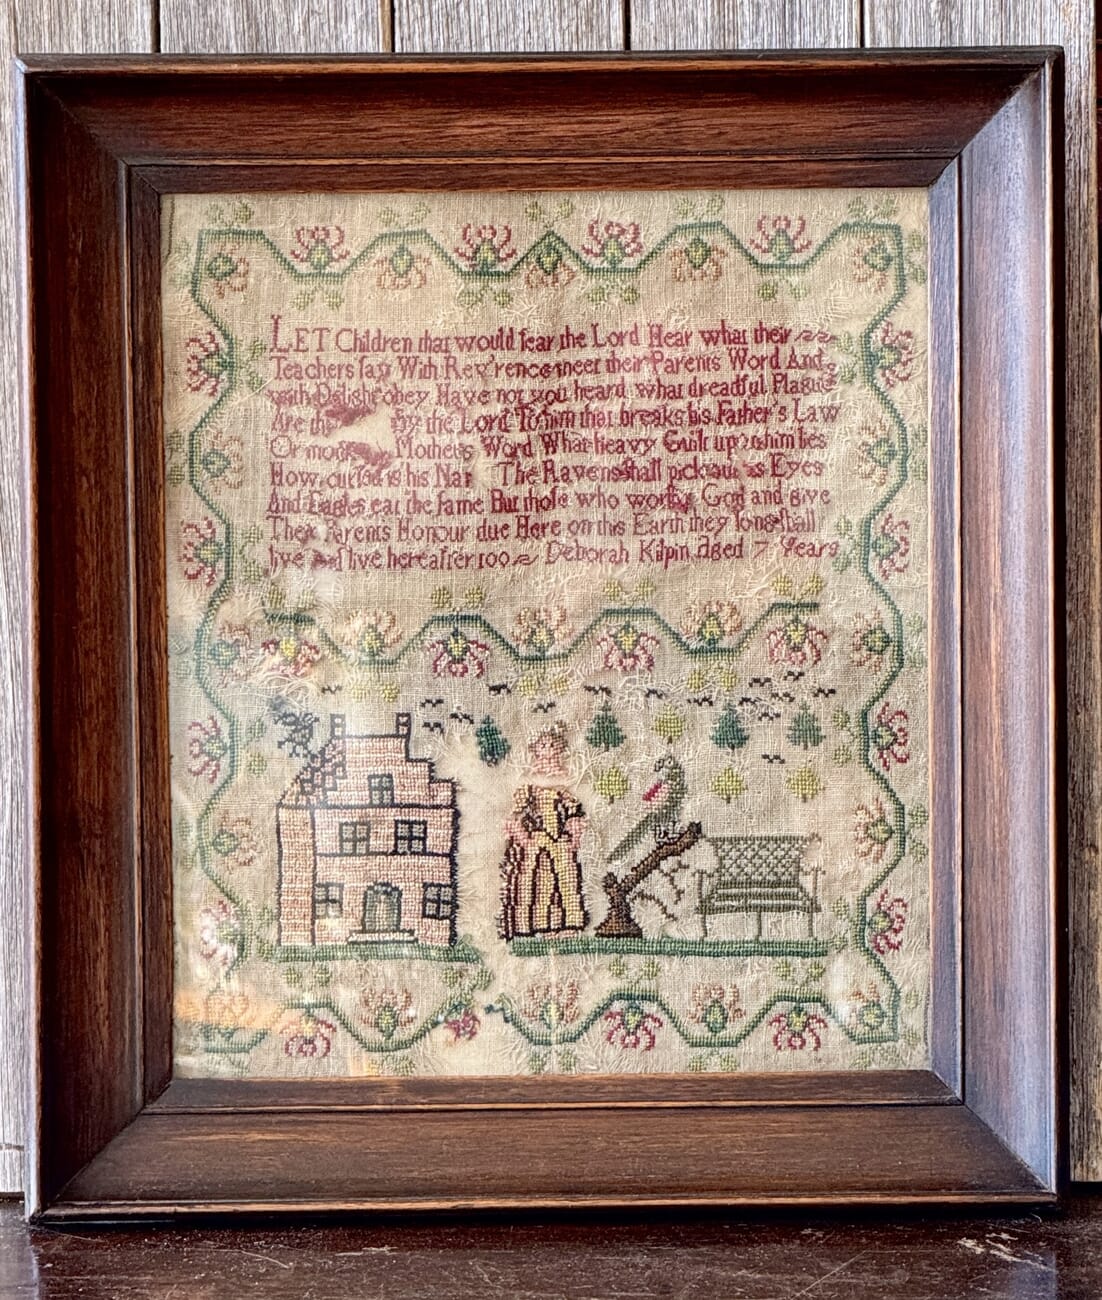 LET Children that would fear the Lord Hear what their
Teachers say With Rev'rence meet their Parents Word And
with Delight obey Have not you heard what dreadful Plagues
Are by the Lord To him that breaks his Father's Law
Or Mothers Word What heavy Guilt upon him lies
How cursed is his The Ravens shall pick out his Eyes
And Eagles eat the same But those who worship God and give
Their Parents Honour due Here on this Earth they long shall
live and live hereafter too Deborah Kilpin Aged 7 Years